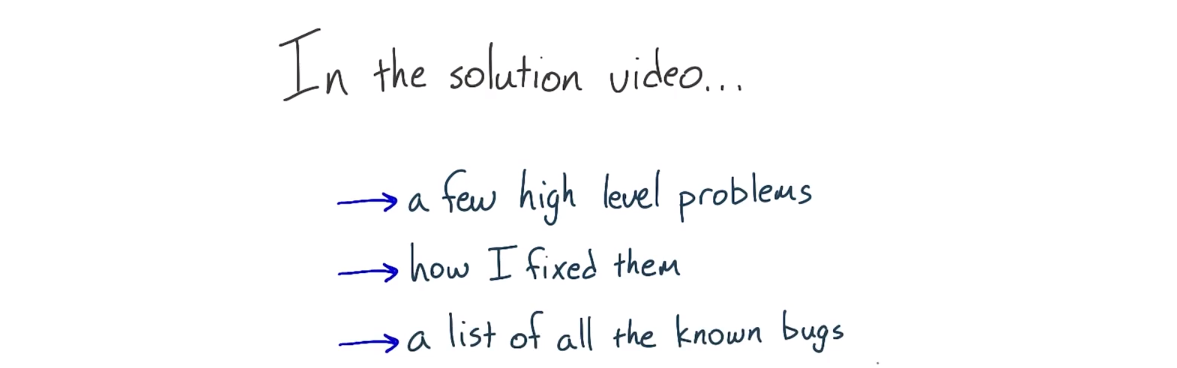 In the solution video...
→ a few high level problems
→ how I fixed them
→ a list of all the known bugs